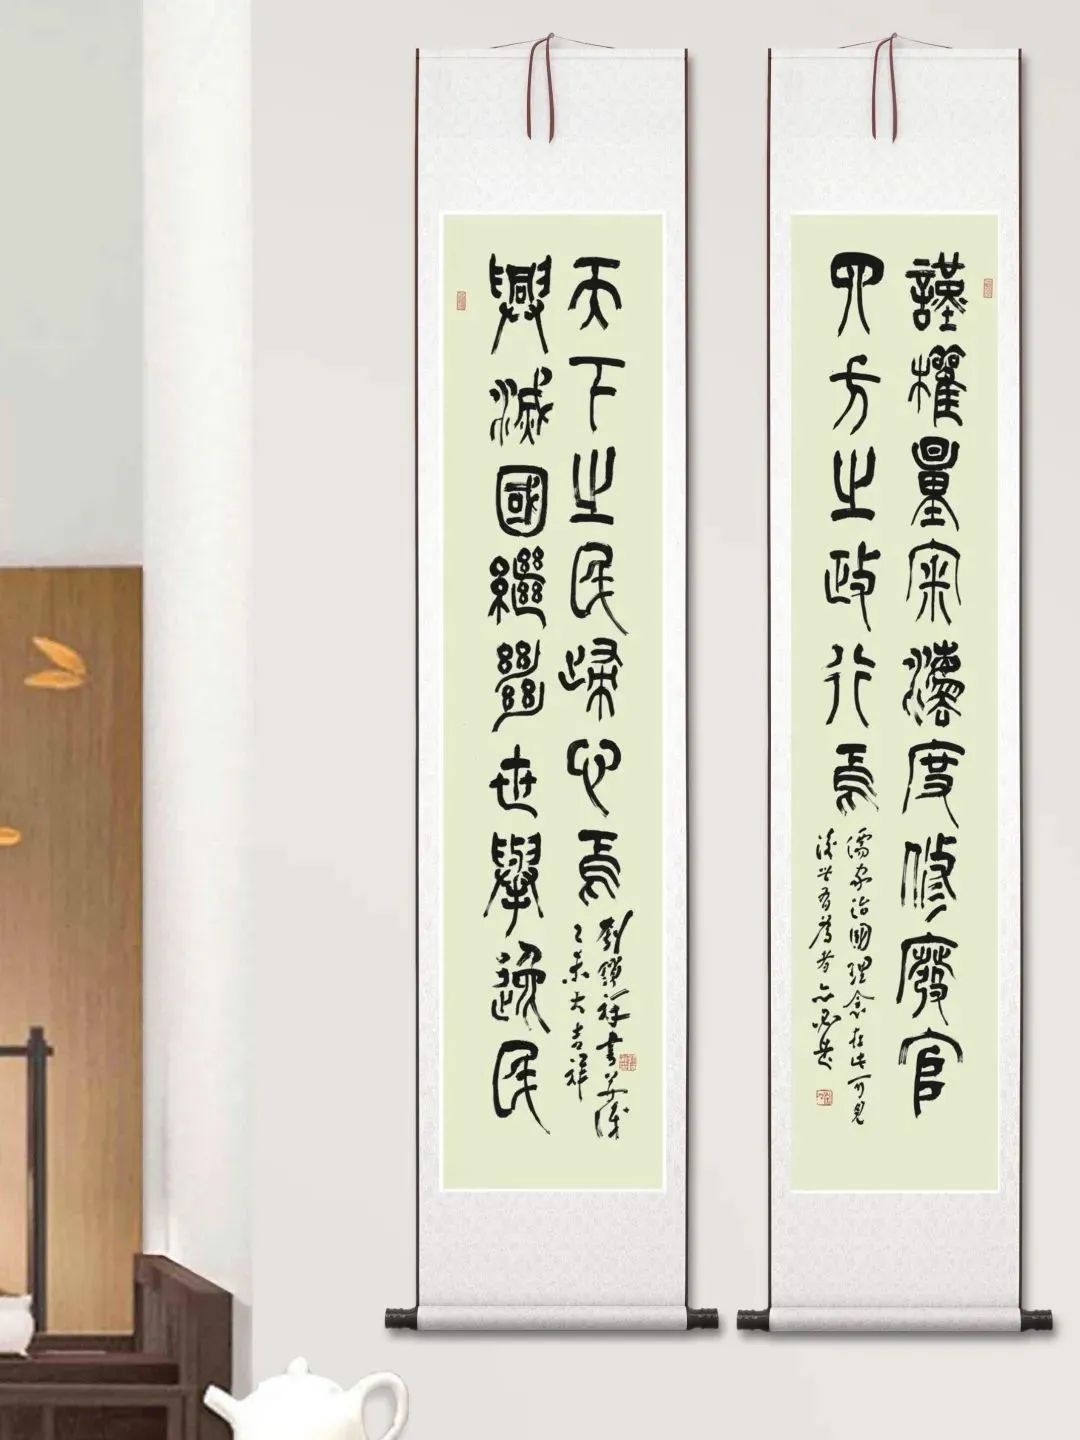 謹權量宷灋度修廢官
四方之政行焉
儒家治國理念在此可見
後世有為者亦必
興滅國繼絕世舉逸民
天下之民歸心焉
劉鎖祥書
乙未大吉祥